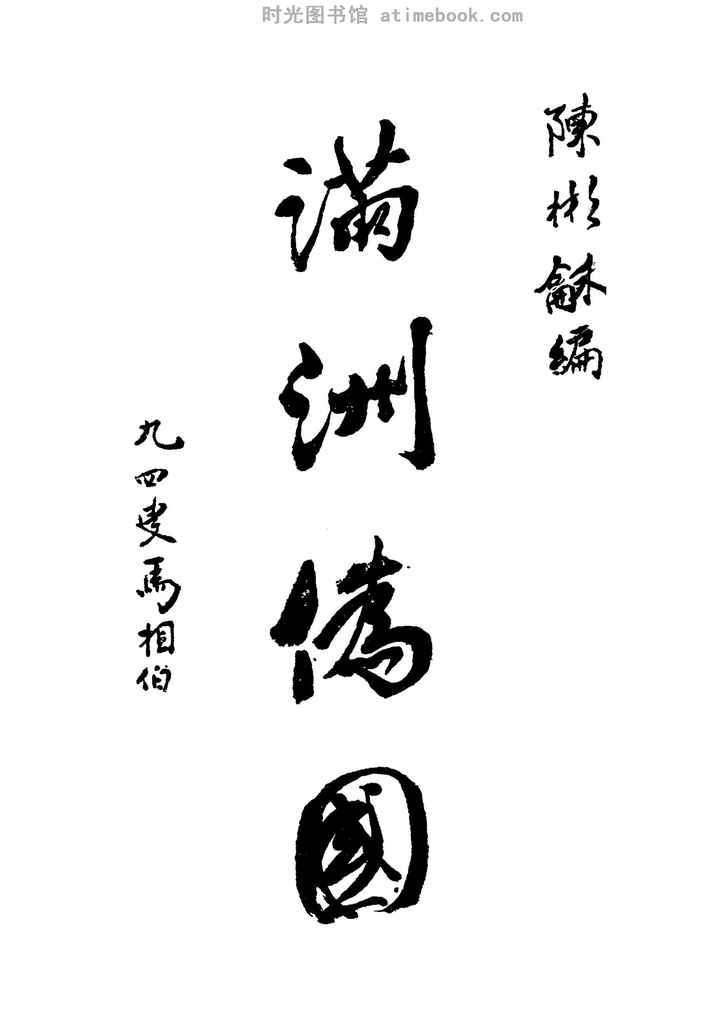 时光图书馆 atimebook.com
陳彬龢編
滿洲僞國
九四叟馬相伯